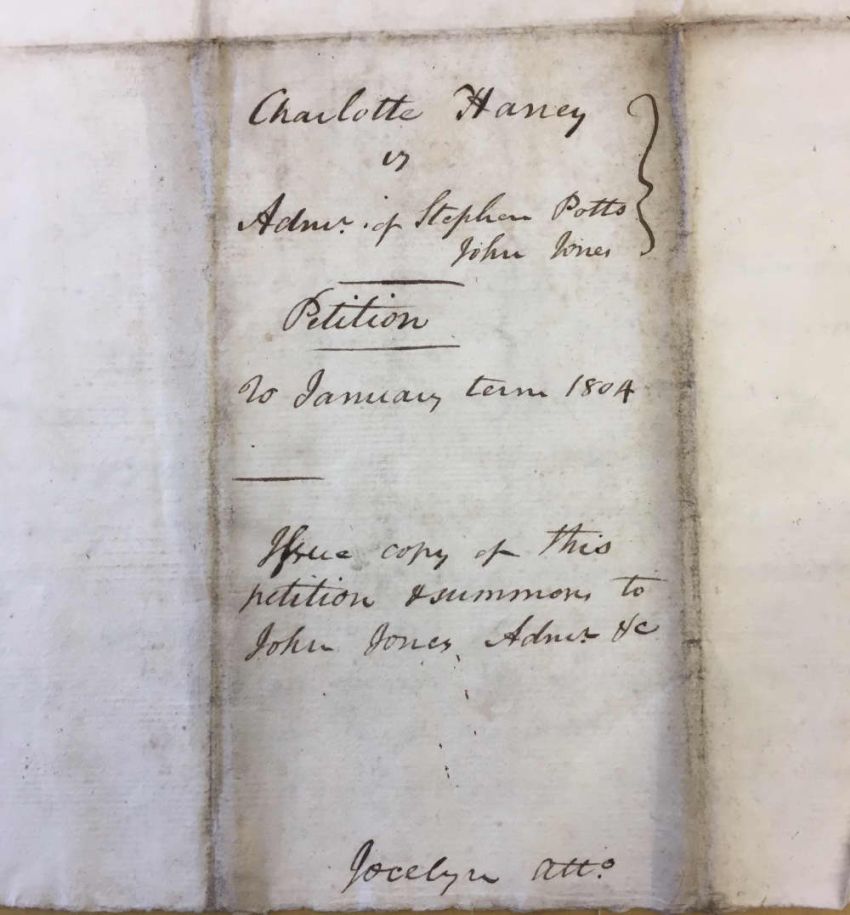 Charlotte Haney
vs
Admr. of Stephen Potts
John Jones
Petition
To January term 1804
Issue copy of this
petition & summons to
John Jones, Admr &c
Jocelyn Atto.